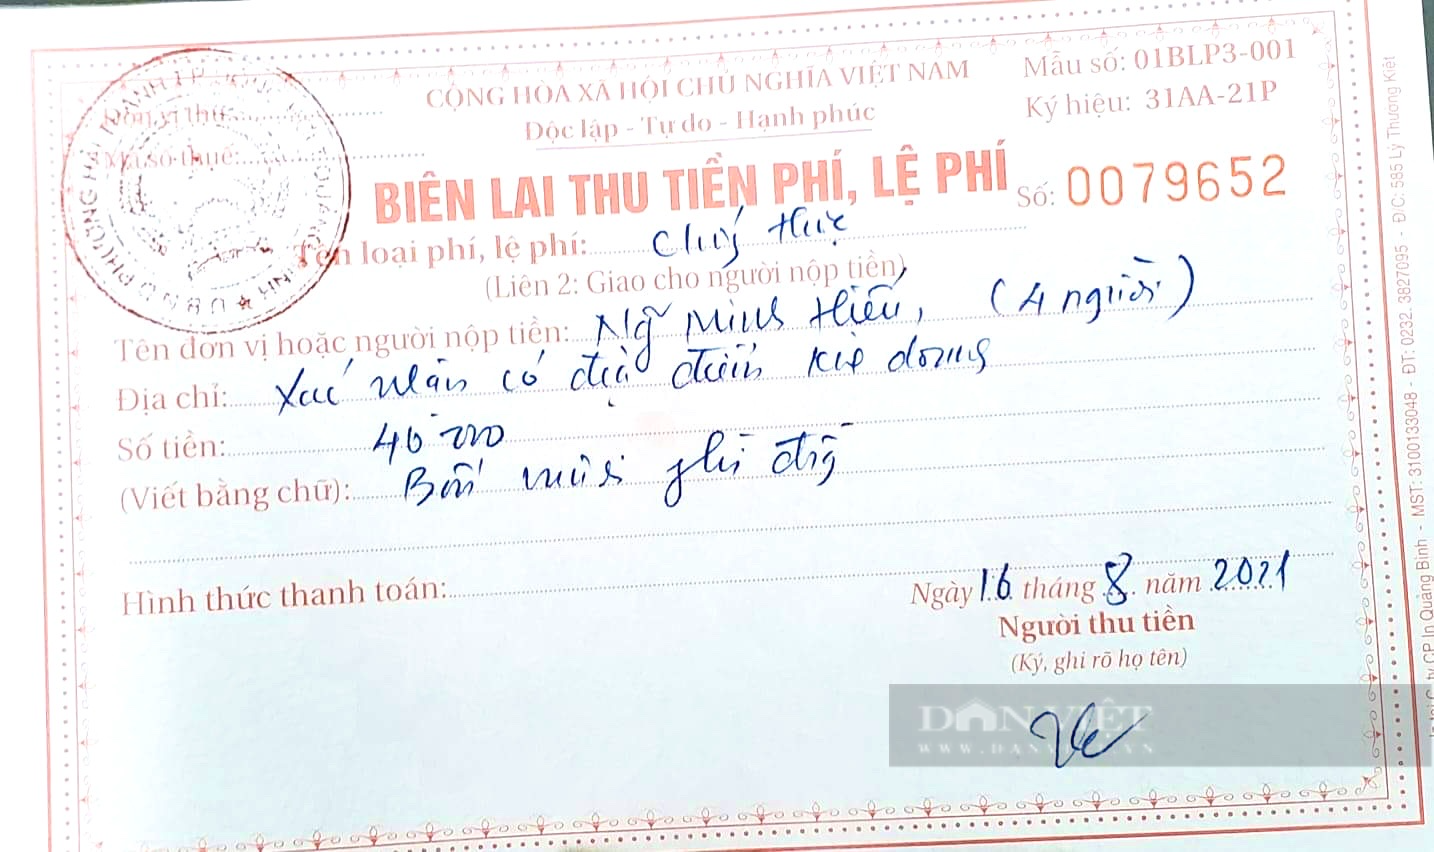 CỘNG HÒA XÃ HỘI CHỦ NGHĨA VIỆT NAM
Độc lập - Tự do - Hạnh phúc
Mẫu số: 01BLP3-001
Ký hiệu: 31AA-21P
Đơn vị thu:
Mã số thuế:
BIÊN LAI THU TIỀN PHÍ, LỆ PHÍ
Số: 0079652
Tên loại phí, lệ phí: Chứng thực
(Liên 2: Giao cho người nộp tiền)
Tên đơn vị hoặc người nộp tiền: Ng Minh Hiếu, (4 người)
Địa chỉ: Xác nhận có
Số tiền: 40 000
(Viết bằng chữ): Bốn mươi
Hình thức thanh toán:
Ngày 16 tháng 8 năm 2021
Người thu tiền
(Ký, ghi rõ họ tên)
DÂN VIỆT
WWW.DANVIET.VN
CP In Quảng Bình - MST: 3100133048 - ĐT: 0232. 3827095 - Đ/C: 585 Lý Thường Kiệt